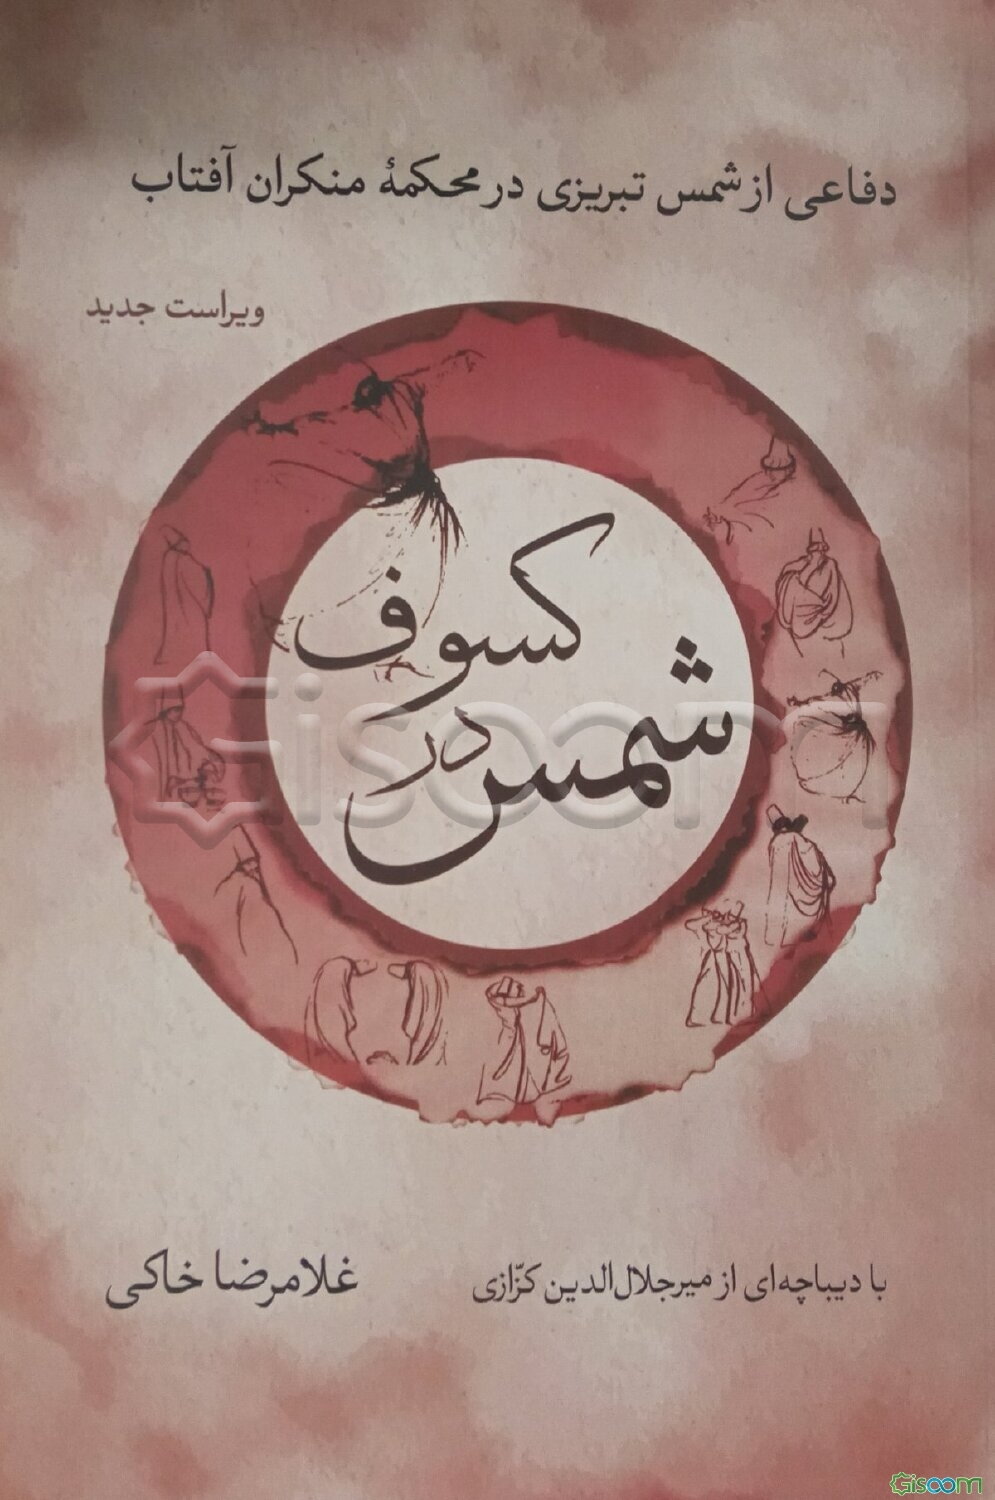 دفاعی از شمس تبریزی در محکمهٔ منکران آفتاب
ویراست جدید
شمس در کسوف
با دیباچه‌ای از میرجلال‌الدین کزّازی
غلامرضا خاکی
Gisoom
Gisoom